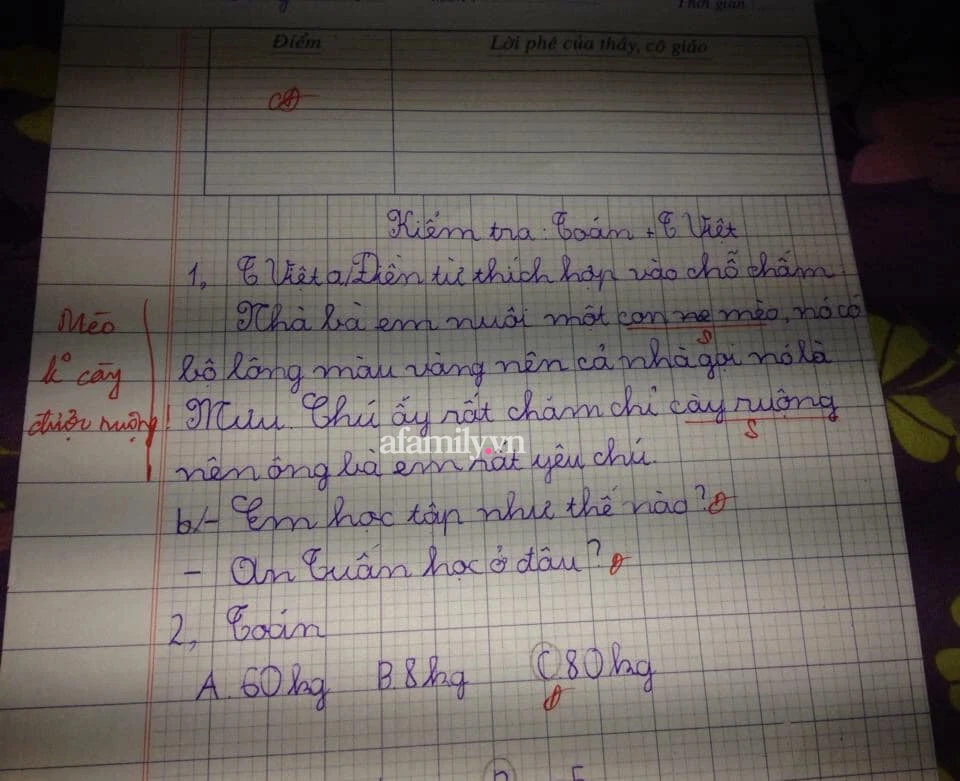 Thời gian
Điểm
Lời phê của thầy, cô giáo
Kiểm tra: Toán + T Việt
1, T Việt a/ Điền từ thích hợp vào chỗ chấm
Nhà bà em nuôi một con mèo, nó có
bộ lông màu vàng nên cả nhà gọi nó là
Mưu. Chú ấy rất chăm chỉ cày ruộng
nên ông bà em rất yêu chú.
b/- Em học tập như thế nào? đ
- An Tuấn học ở đâu? đ
2, Toán
A. 60kg B. 8kg C. 80kg
đ
S
S
Mèo
k° cày
được ruộng!
afamily.vn